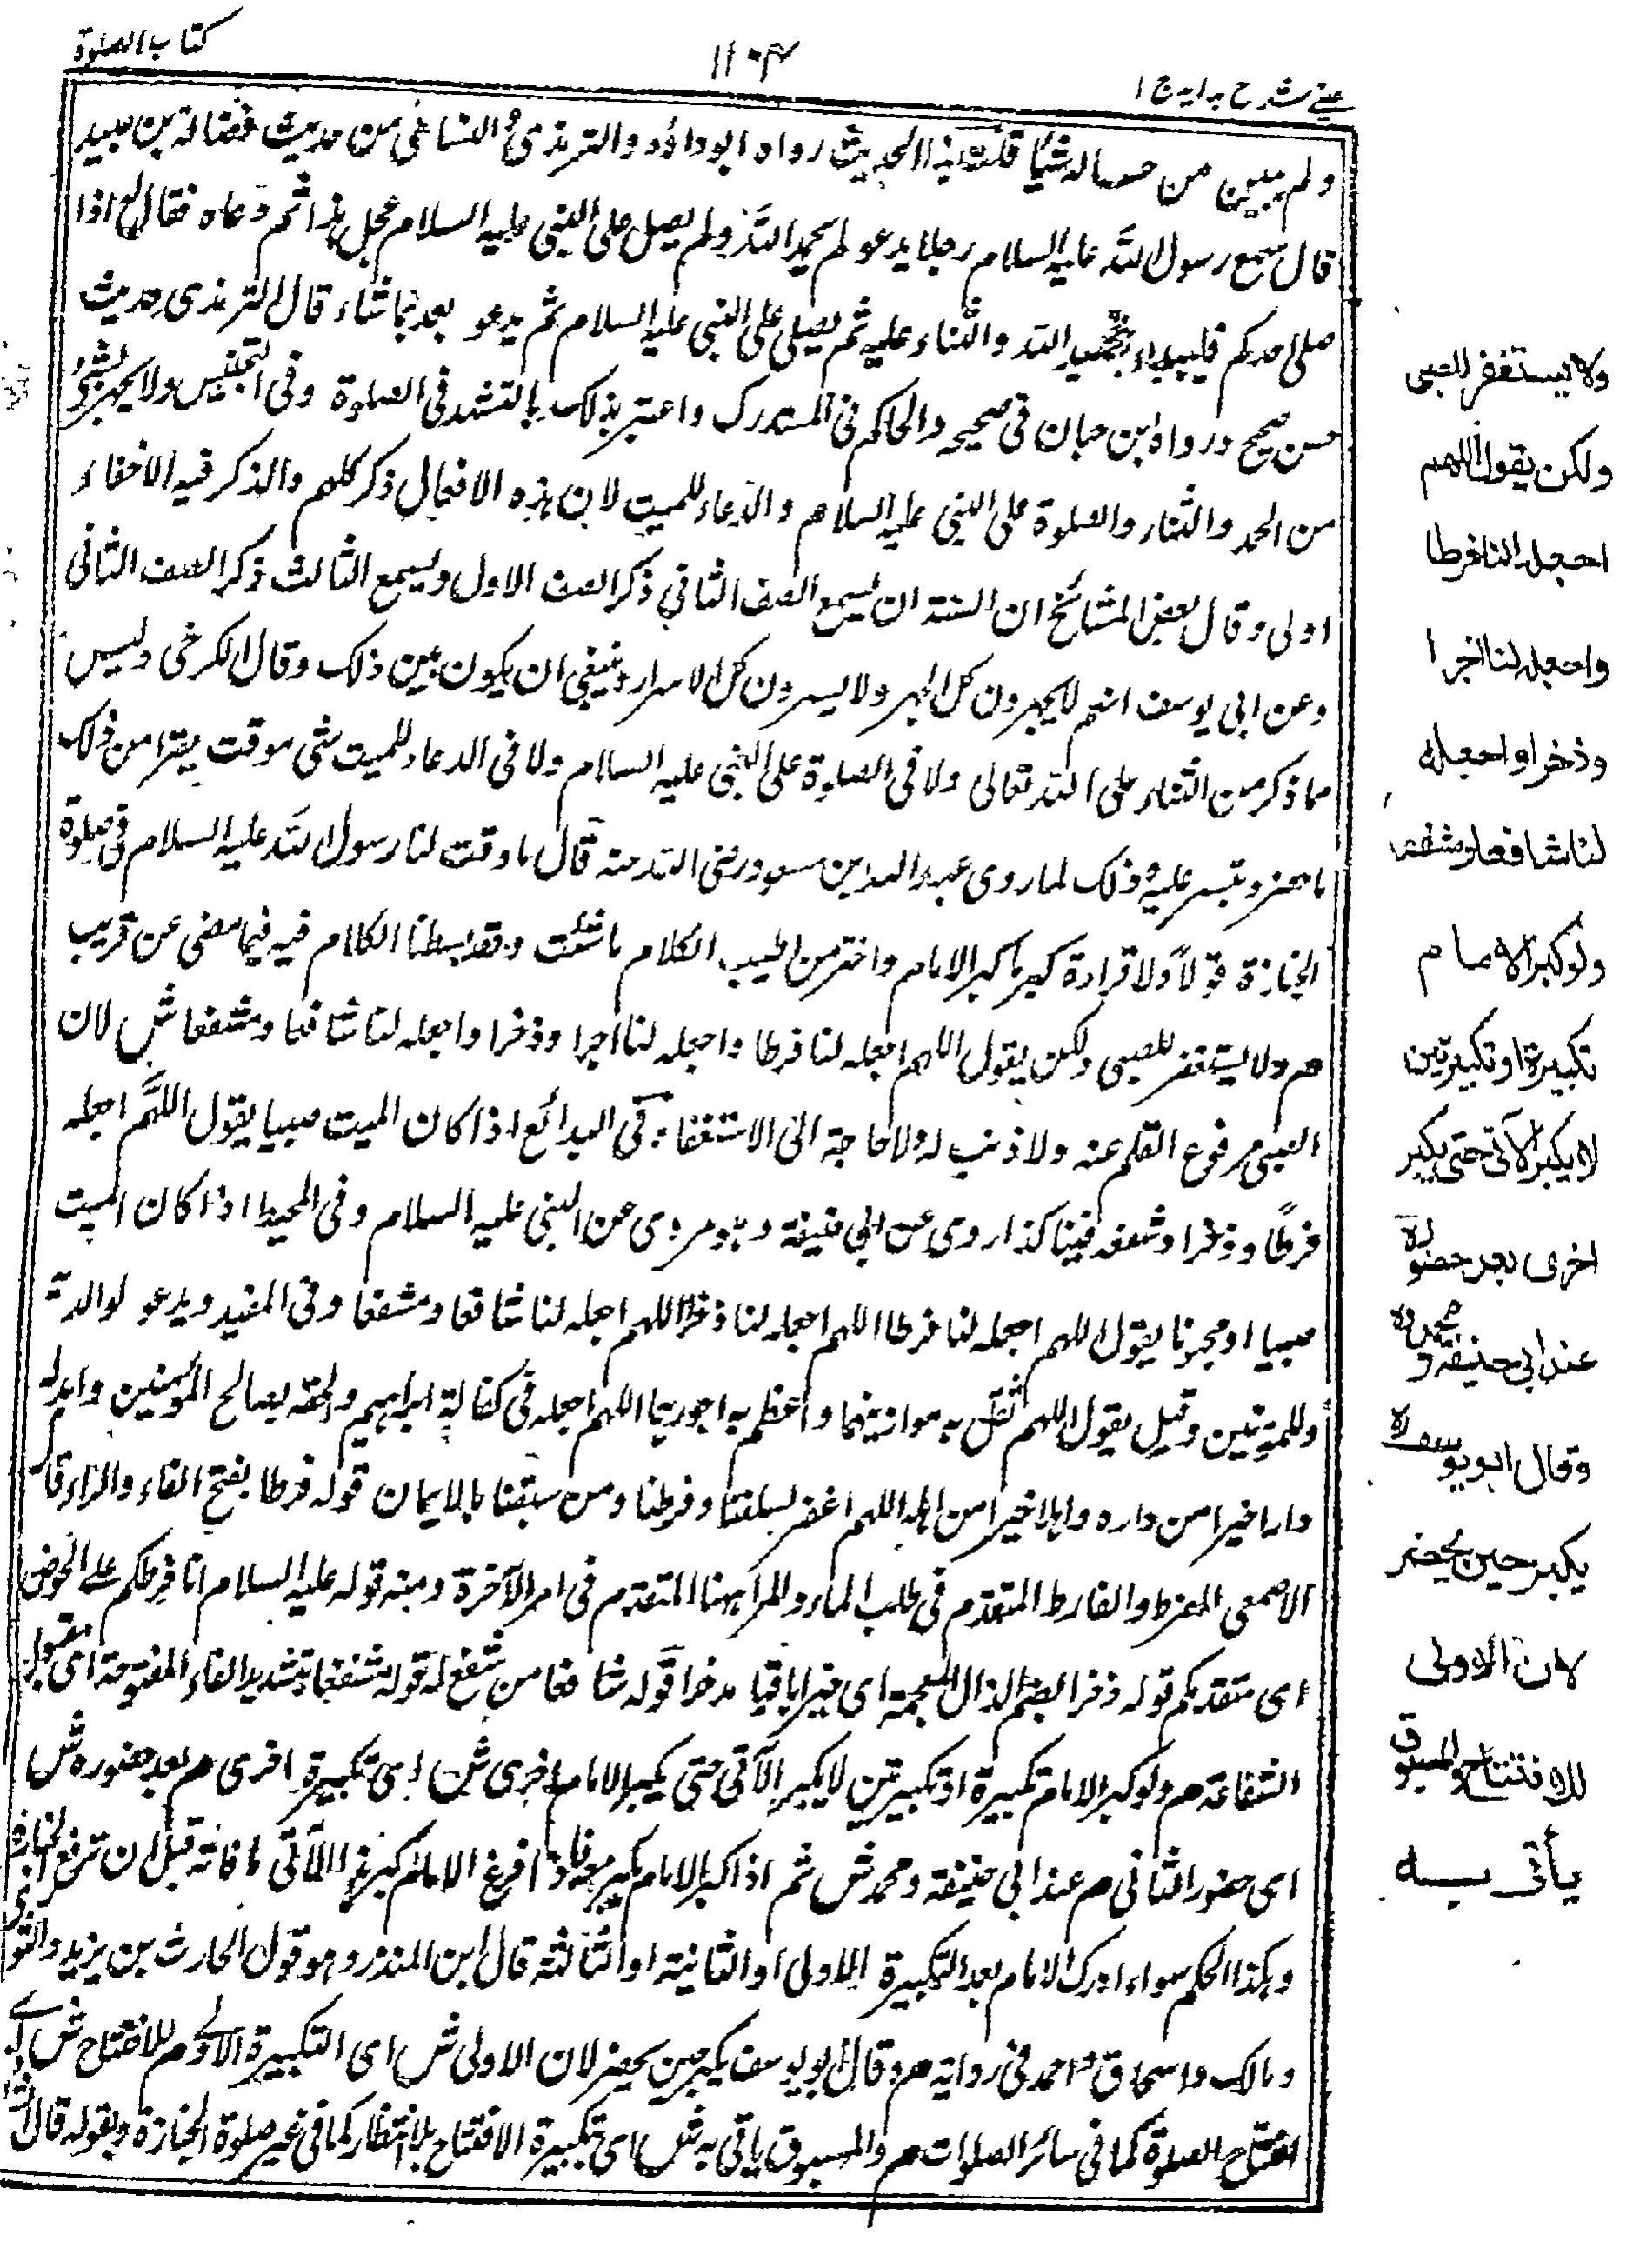 عینے شرح ہدایہ ج ۱
۱۱۰۴
کتاب الصلوة
ولم یبین من حاله شیئا قلت هذا الحدیث رواه ابوداؤد والترمذی والنسائی من حدیث فضالة بن عبید
قال سمع رسول الله علیه السلام رجلا یدعو لم یحمد الله ولم یصل علی النبی علیه السلام عجل هذا ثم دعاه فقال له اذا
صلی احدکم فلیبداء بتحمید الله والثناء علیه ثم یصلی علی النبی علیه السلام ثم یدعو بعد بما شاء قال الترمذی حدیث
حسن صحیح ورواه ابن حبان فی صحیحه والحاکم فی المستدرک واعتبر بذلک بالتشهد فی الصلوة وفی التجنیس ولا یجهر بشئ
من الحمد والثناء والصلوة علی النبی علیه السلام والدعاء للمیت لان هذه الافعال ذکر کلهم والذکر فیه الاخفاء
اولی وقال بعض المشائخ ان السنة ان یسمع الصف الثانی ذکر الصف الاول ویسمع الثالث ذکر الصف الثانی
وعن ابی یوسف انهم لا یجهرون کل الجهر ولا یسرون کل الاسرار وینبغی ان یکون بین ذلک وقال الکرخی ولیس
مما ذکر من الثناء علی الله تعالی ولا فی الصلوة علی النبی علیه السلام ولا فی الدعاء للمیت شی موقت یقرا من ذلک
ما حضر وتیسر علیه وذلک لما روی عبد الله بن مسعود رضی الله عنه قال ما وقت لنا رسول الله علیه السلام فی صلوة
الجنازة قولاً ولا قراءة کبر ما کبر الامام واختر من اطیب الکلام ما شئت وقد بسطنا الکلام فیه فیما مضی عن قریب
م ولا یستغفر للصبی ولکن یقول اللهم اجعله لنا فرطا واجعله لنا اجرا وذخرا واجعله لنا شافعا ومشفعا ش لان
الصبی مرفوع القلم عنه ولا ذنب له ولا حاجة الی الاستغفار وفی البدائع اذا کان المیت صبیا یقول اللهم اجعله
فرطاً وذخرا وشفعه فینا کذا روی عن ابی حنیفة وهو مروی عن النبی علیه السلام وفی المحیط اذا کان المیت
صبیا او مجنونا یقول اللهم اجعله لنا فرطا اللهم اجعله لنا ذخرا اللهم اجعله لنا شافعا ومشفعا وفی المفید ویدعو لوالدیه
وللمؤمنین وقیل یقول اللهم ثقل به موازینهما واعظم به اجورهما اللهم اجعله فی کفالة ابراهیم والحقه بصالح المؤمنین وابدله
دارا خیرا من داره واهلا خیرا من اهله اللهم اغفر لسلفنا وفرطنا ومن سبقنا بالایمان قوله فرطا بفتح الفاء والراء قال
الاصمعی الفرط والفارط المتقدم فی طلب الماء والمراد ههنا المتقدم فی امر الآخرة ومنه قوله علیه السلام انا فرطکم علی الحوض
ای متقدمکم قوله ذخرا بضم الذال المعجمة ای خیرا باقیا مدخرا قوله شافعا من شفع له قوله مشفعا بتشدید الفاء المفتوحة ای مقبول
الشفاعة م ولو کبر الامام تکبیرة او تکبیرتین لا یکبر الآتی حتی یکبر الامام اخری ش ای تکبیرة اخری م بعد حضوره ش
ای حضور الثانی م عند ابی حنیفة ومحمد ش ثم اذا کبر الامام یکبر معه فاذا فرغ الامام کبر هذا الآتی ما فاته قبل ان ترفع الجنازة
وهکذا الحکم سواء ادرک الامام بعد التکبیرة الاولی او الثانیة او الثالثة قال ابن المنذر وهو قول الحارث بن یزید والثوری
ومالک واسحاق واحمد فی روایة م وقال ابو یوسف یکبر حین یحضر لان الاولی ش ای التکبیرة الاولی م للافتتاح ش ای
افتتاح الصلوة کما فی سائر الصلوات م والمسبوق یاتی به ش ای تکبیرة الافتتاح بلا انتظار کما فی غیر صلوة الجنازة وبقوله قال
ولا یستغفر للصبی
ولکن یقول اللهم
اجعله لنا فرطا
واجعله لنا اجرا
وذخرا واجعله
لنا شافعا ومشفعا
ولو کبر الامام
تکبیرة او تکبیرتین
لا یکبر الآتی حتی یکبر
اخری بعد حضوره
عند ابی حنیفة ومحمد
وقال ابو یوسف
یکبر حین یحضر
لان الاولی
للافتتاح والمسبوق
یأتی به